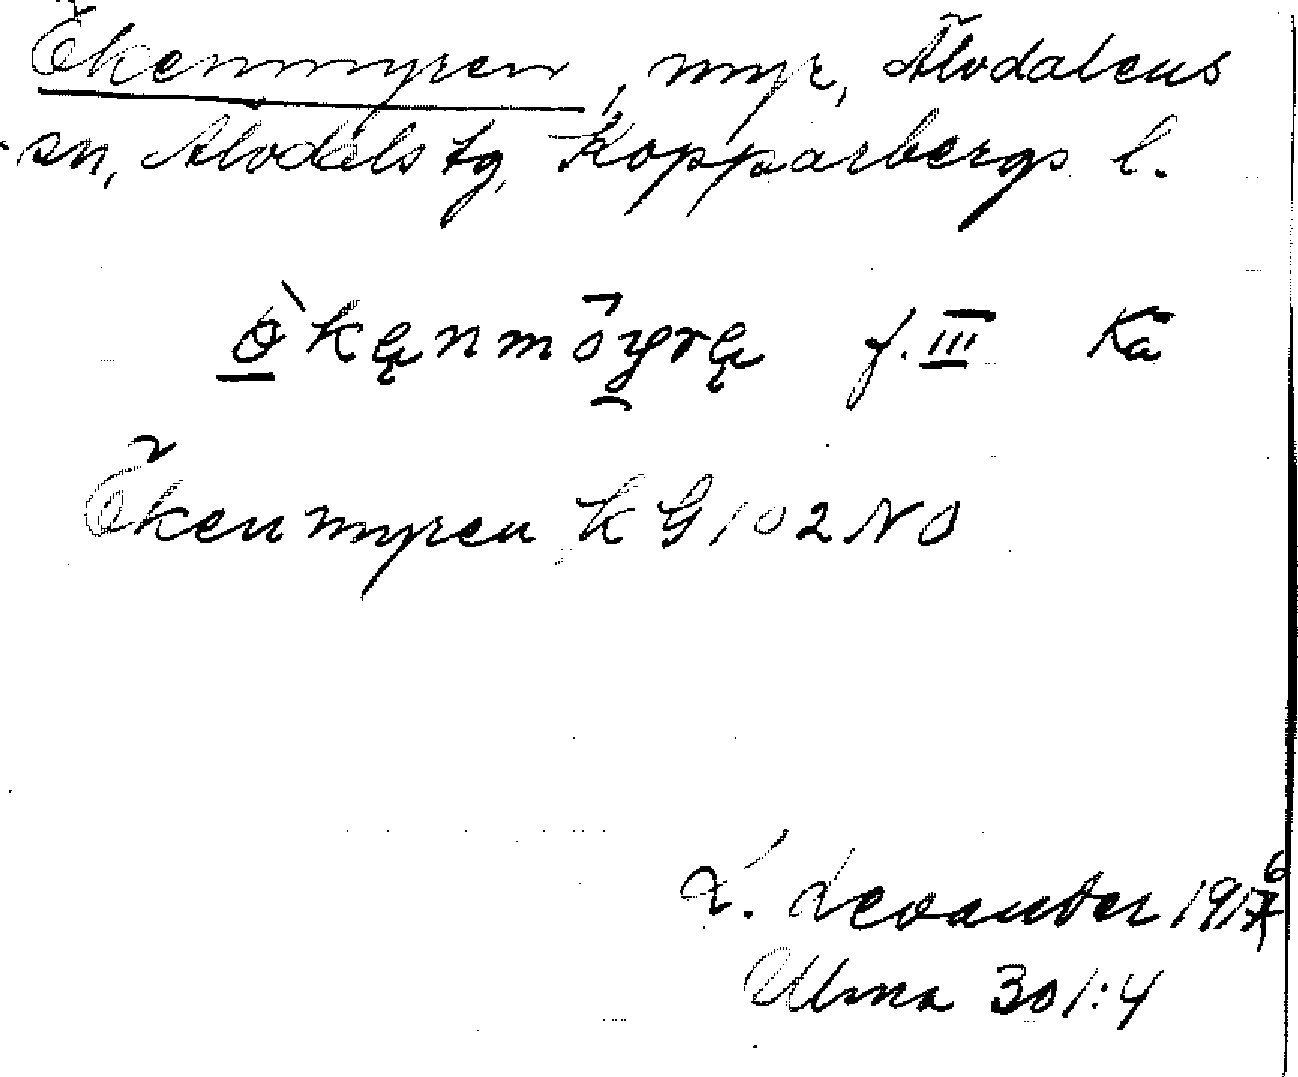 Ökenmyren, myr, Älvdalens
sn, Älvdals tg, Kopparbergs l.
f. III Kå
Ökenmyren kG 102 NO
L. Levander 1916
Ulma 301:4